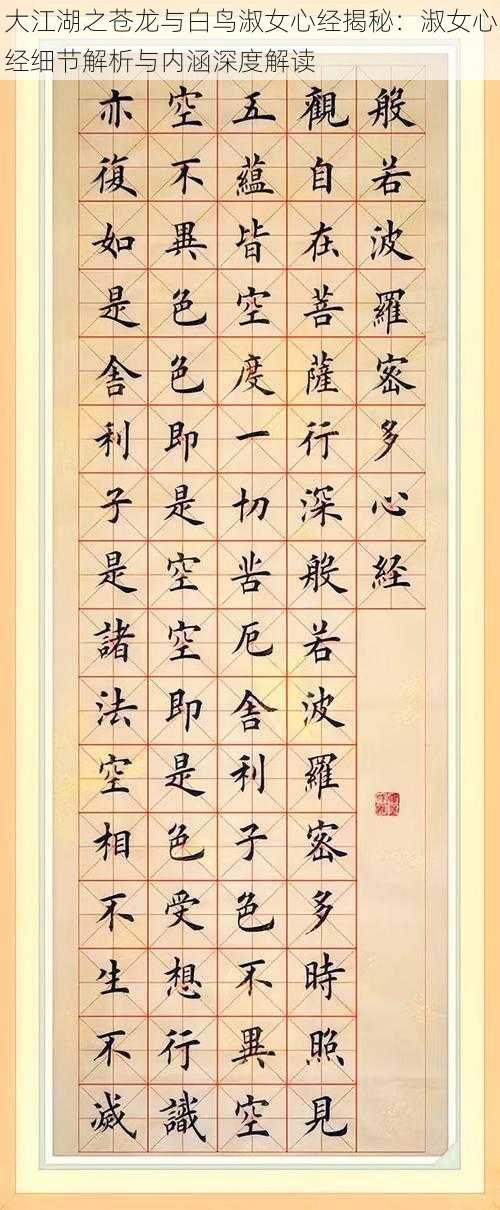 大江湖之苍龙与白鸟淑女心经揭秘：淑女心
经细节解析与内涵深度解读
般若波羅密多心経
觀自在菩薩行深般若波羅密多時照見
五蘊皆空度一切苦厄舎利子色不異空
空不異色色即是空空即是色受想行識
亦復如是舎利子是諸法空相不生不滅